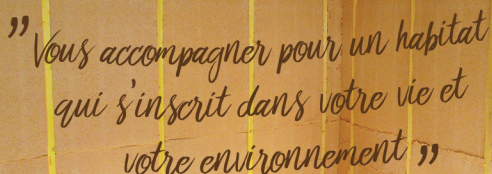 ” Vous accompagner pour un habitat
qui s'inscrit dans votre vie et
votre environnement ”